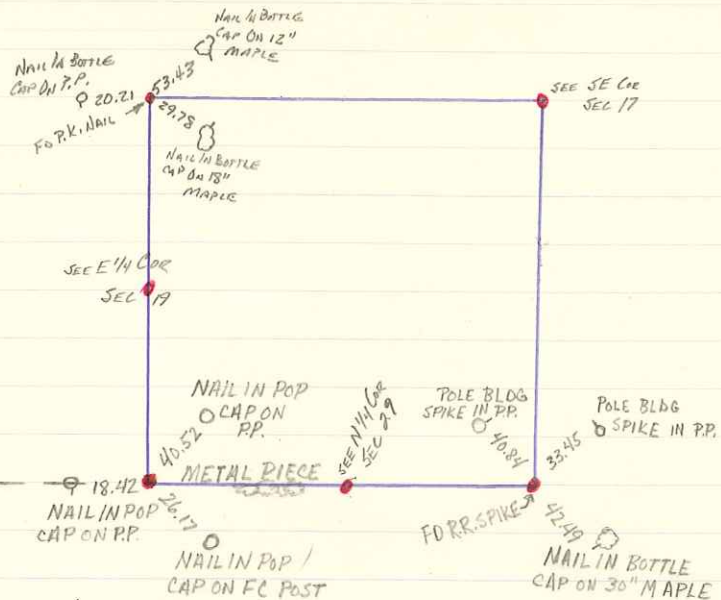 NAIL IN BOTTLE
CAP ON 12"
MAPLE
NAIL IN BOTTLE
CAP ON P.P.
20.21
53.43
FD P.K. NAIL
29.78
NAIL IN BOTTLE
CAP ON 18"
MAPLE
SEE SE COR
SEC 17
SEE E 1/4 COR
SEC 19
NAIL IN POP
CAP ON
P.P.
40.52
SEE N 1/4 COR
SEC 29
POLE BLDG
SPIKE IN P.P.
40.84
POLE BLDG
SPIKE IN P.P.
33.45
METAL PIECE
18.42
NAIL IN POP
CAP ON P.P.
26.17
NAIL IN POP
CAP ON FC POST
FD R.R. SPIKE
42.49
NAIL IN BOTTLE
CAP ON 30" MAPLE